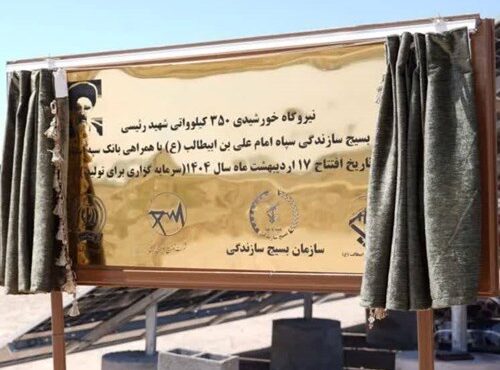 نیروگاه خورشیدی ۳۵۰ کیلوواتی شهید رئیسی
بسیج سازندگی سپاه امام علی بن ابیطالب (ع) با همراهی بانک
تاریخ افتتاح ۱۷ اردیبهشت ماه سال ۱۴۰۴(سرمایه گزاری برای تولید
سازمان بسیج سازندگی